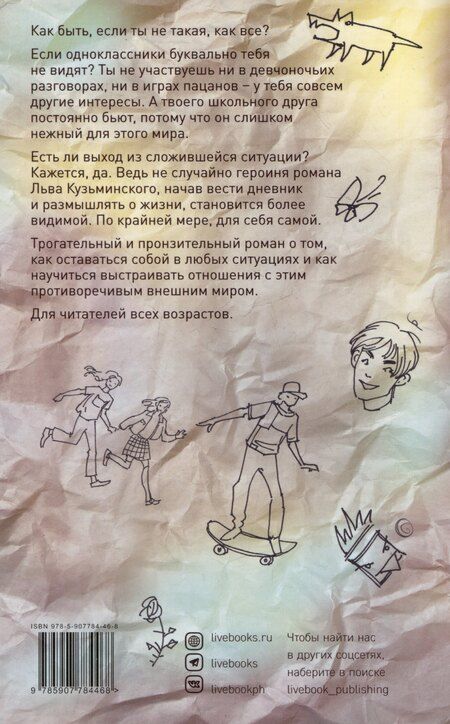 Как быть, если ты не такая, как все?
Если одноклассники буквально тебя
не видят? Ты не участвуешь ни в девчоночьих
разговорах, ни в играх пацанов – у тебя совсем
другие интересы. А твоего школьного друга
постоянно бьют, потому что он слишком
нежный для этого мира.
Есть ли выход из сложившейся ситуации?
Кажется, да. Ведь не случайно героиня романа
Льва Кузьминского, начав вести дневник
и размышлять о жизни, становится более
видимой. По крайней мере, для себя самой.
Трогательный и пронзительный роман о том,
как оставаться собой в любых ситуациях и как
научиться выстраивать отношения с этим
противоречивым внешним миром.
Для читателей всех возрастов.
ISBN 978-5-907784-46-8
9 785907 784468 >
livebooks.ru
livebooks
livebookph
Чтобы найти нас
в других соцсетях,
наберите в поиске
livebook_publishing